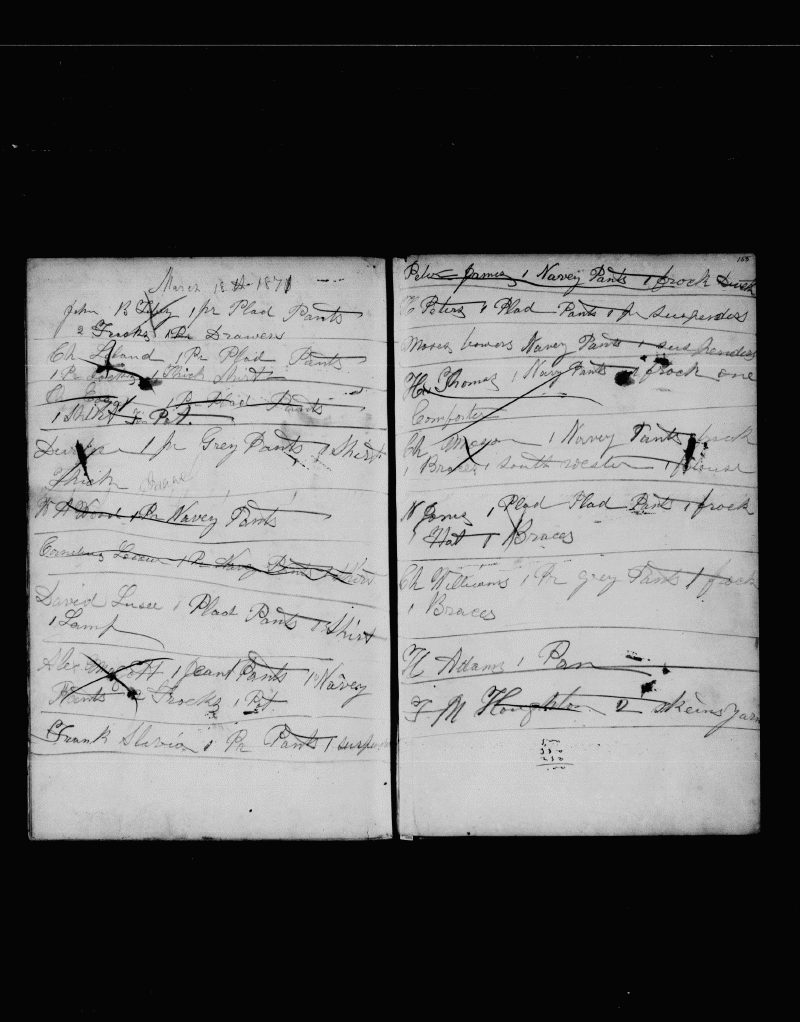 March 13th 1871
John B 1 pr Plad Pants
2 Frocks 1 Pr Drawers
Ch Leland 1 Pr Plad Pants
1 Pr 1 Thick Shirt
Ch 1 Pr Plad Pants
1 Shirt 1 Pot.
1 pr Grey Pants 1 Shirt
Thick
W H Wood 1 Pr Navey Pants
Cornelius 1 Pr Navy Pants 1 Shirt
David Lusee 1 Plad Pants 1 Shirt
1 Lamp
Alex 1 Jean Pants 1 Navey
Pants 2 Frocks 1 Pot
Frank Slivia 1 Pr Pants 1
155
Peter James 1 Navey Pants 1 frock
H Peters 1 Plad Pants 1 pr suspenders
Moses bowers Navey Pants 1 suspenders
H Thomas 1 Navy Pants 1 frock one
Comforter
Ch Mason 1 Navey Pants
1 Braces 1 south wester 1 blouse
N James 1 Plad Plad Pants 1 frock
Hat 1 Braces
Ch Williams 1 Pr grey Pants 1 frock
1 Braces
H Adams 1 Pan
F M Houghton 2 skeins yarn